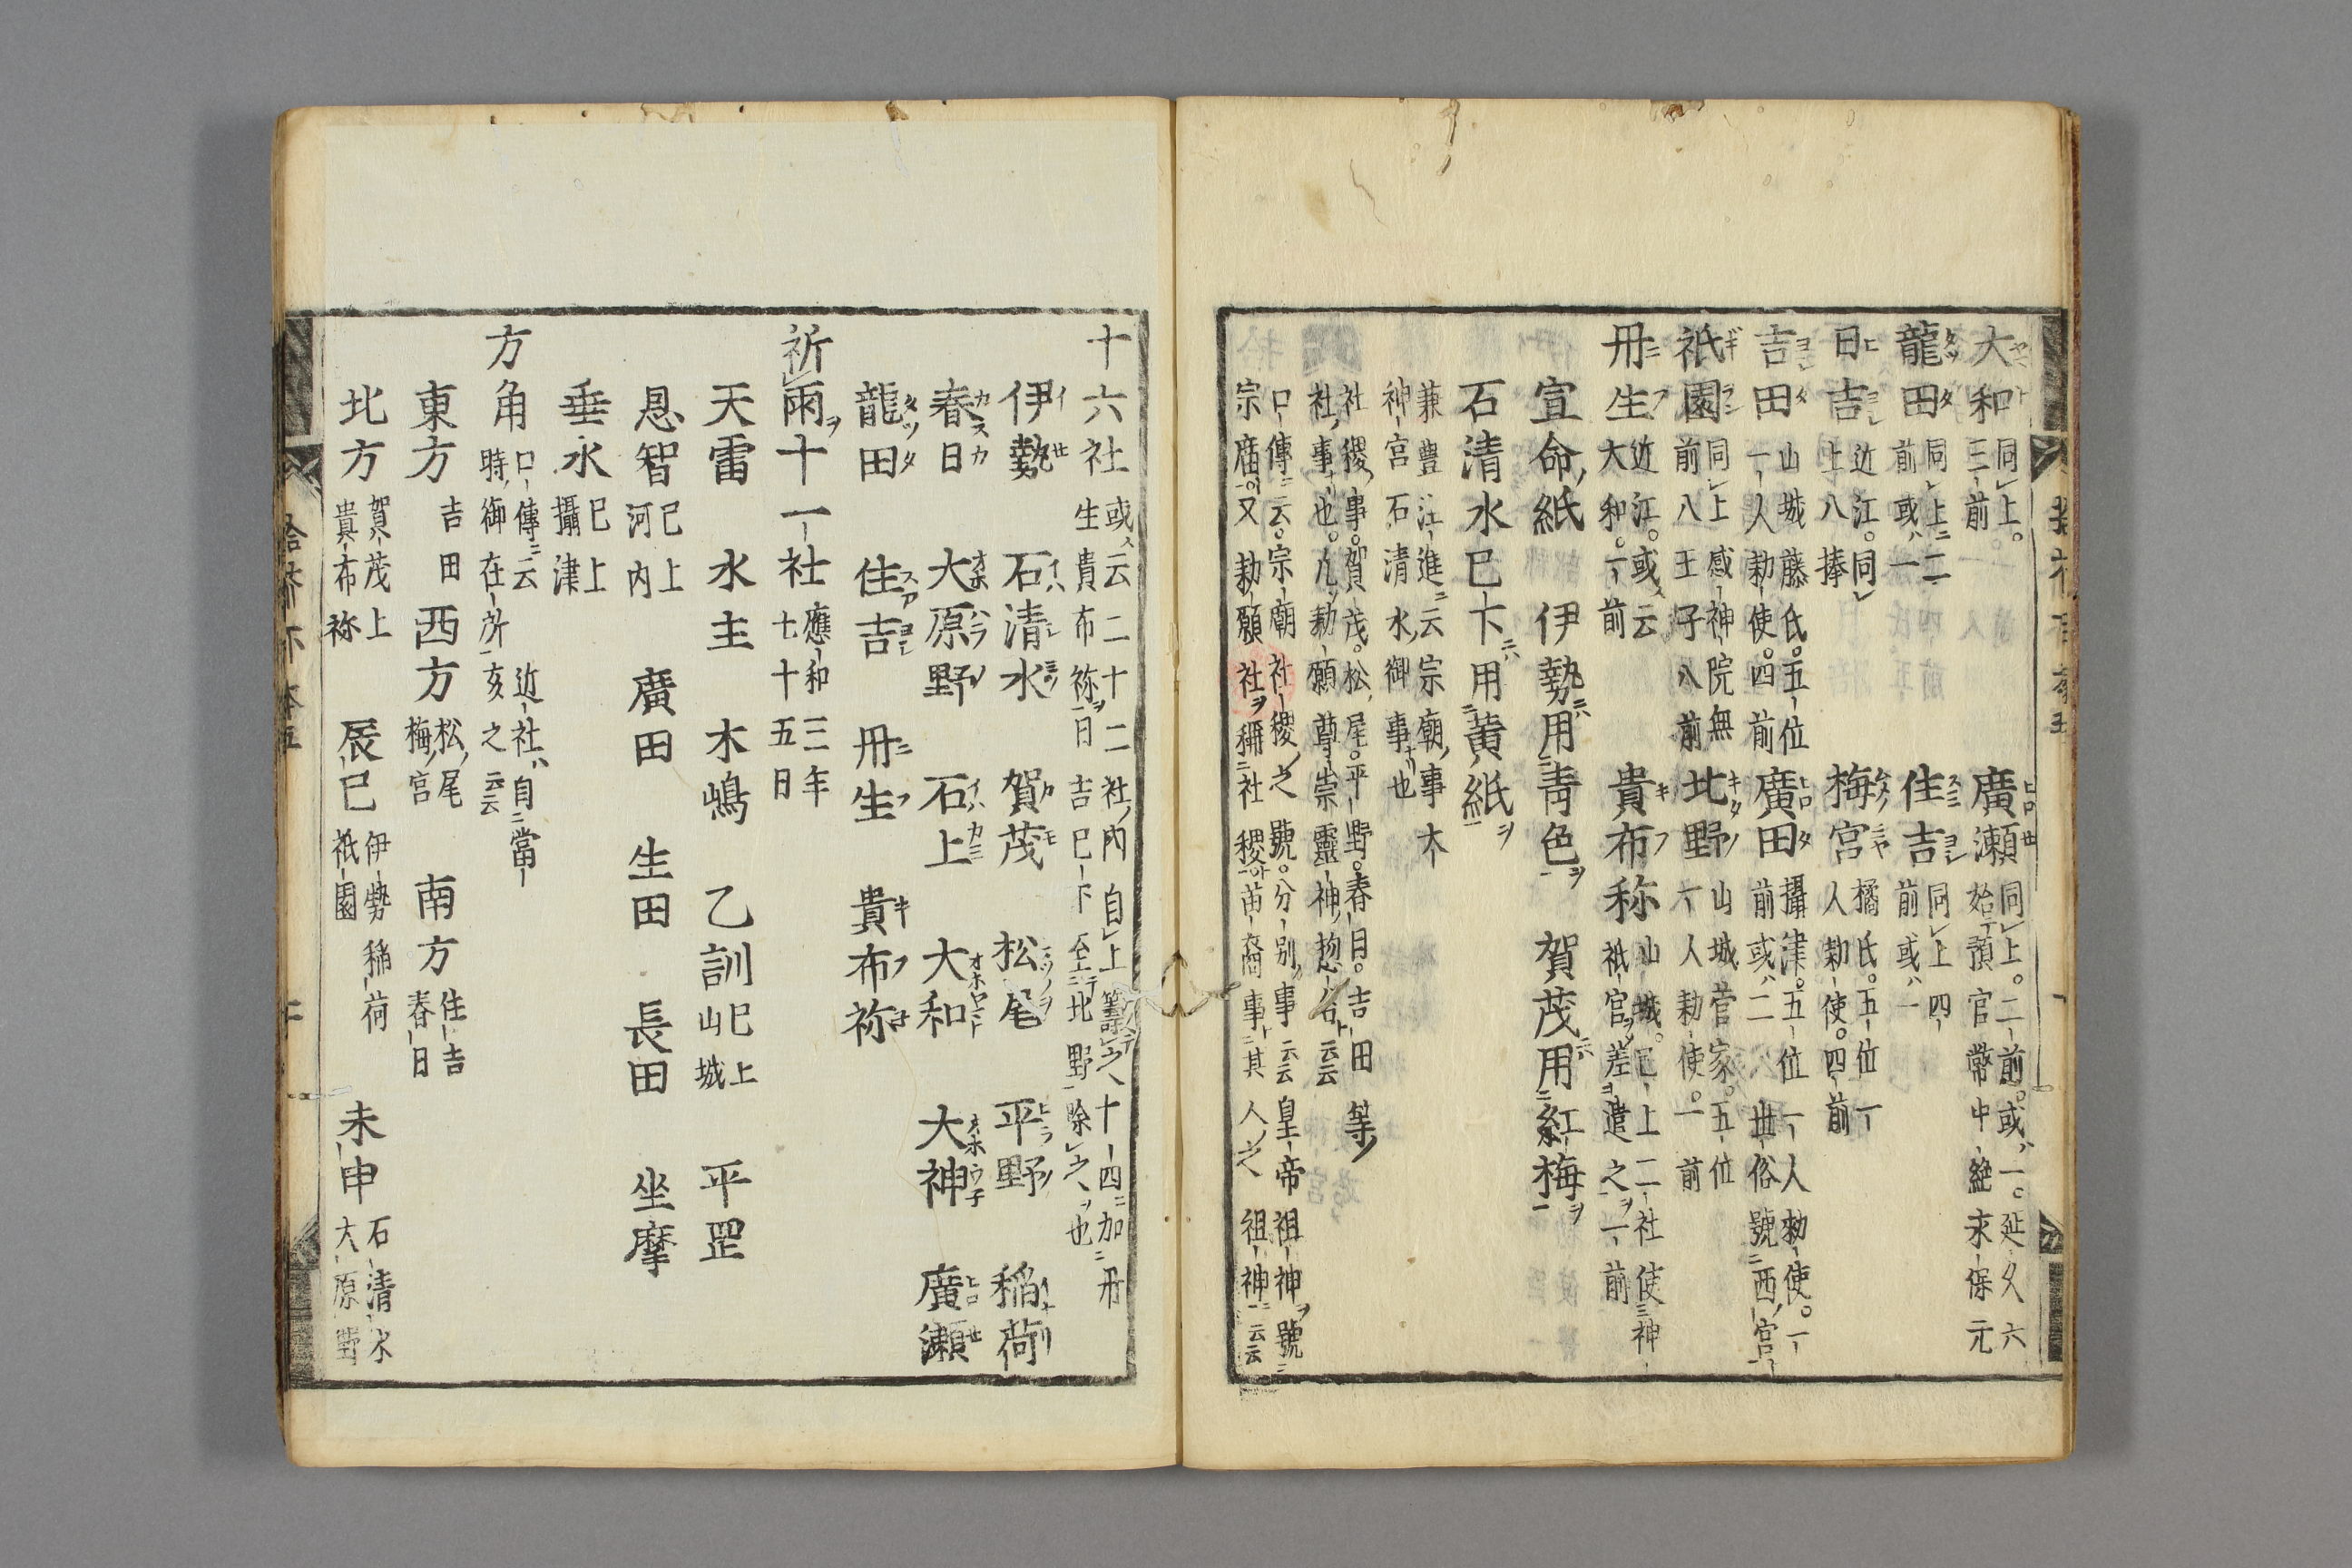 大和 同上。三前 廣瀬 同上。二前。或一。延久六始預官幣中絶求保元
龍田 同上二前或一 住吉 同上四前或一
日吉 近江。同上八捧 梅宮 橘氏。五位一人勅使。四前
吉田 山城藤氏。五位一人勅使。四前 廣田 攝津。五位一人勅使。一前或二 世俗號西宮
祇園 同上感神院無前八王子八前 北野 山城菅家。五位一人勅使。一前
丹生 近江。或云大和。一前 貴布祢 山城。已上二社使神祇官差遣之一前
宣命紙 伊勢用青色 賀茂用紅梅
石清水已下用黄紙
兼豊江進云宗廟事太神宮石清水御事也
社稷事。賀茂。松尾。平野。春日。吉田等社事也。凡勅願尊崇靈神惣名云云
口傳云。宗廟社稷之號。分別事云云皇帝祖神號宗庿又勅願社稱社稷苗裔事其人之祖神云云
十六社 或云二十二社内自上籌之十四加丹生貴布祢日吉已下至北野除之也
伊勢 石清水 賀茂 松尾 平野 稲荷
春日 大原野 石上 大和 大神 廣瀬
龍田 住吉 丹生 貴布祢
祈雨十一社 應和三年七十五日
天雷 水主 木嶋 乙訓 已上山城 平罡
恩智 已上河内 廣田 生田 長田 坐摩
垂水 已上攝津
方角 口傳云時御在所近社自當亥之云云
東方 吉田 西方 松尾梅宮 南方 住吉春日
北方 賀茂上貴布祢 辰巳 伊勢稲荷祇園 未申 石清水大原野